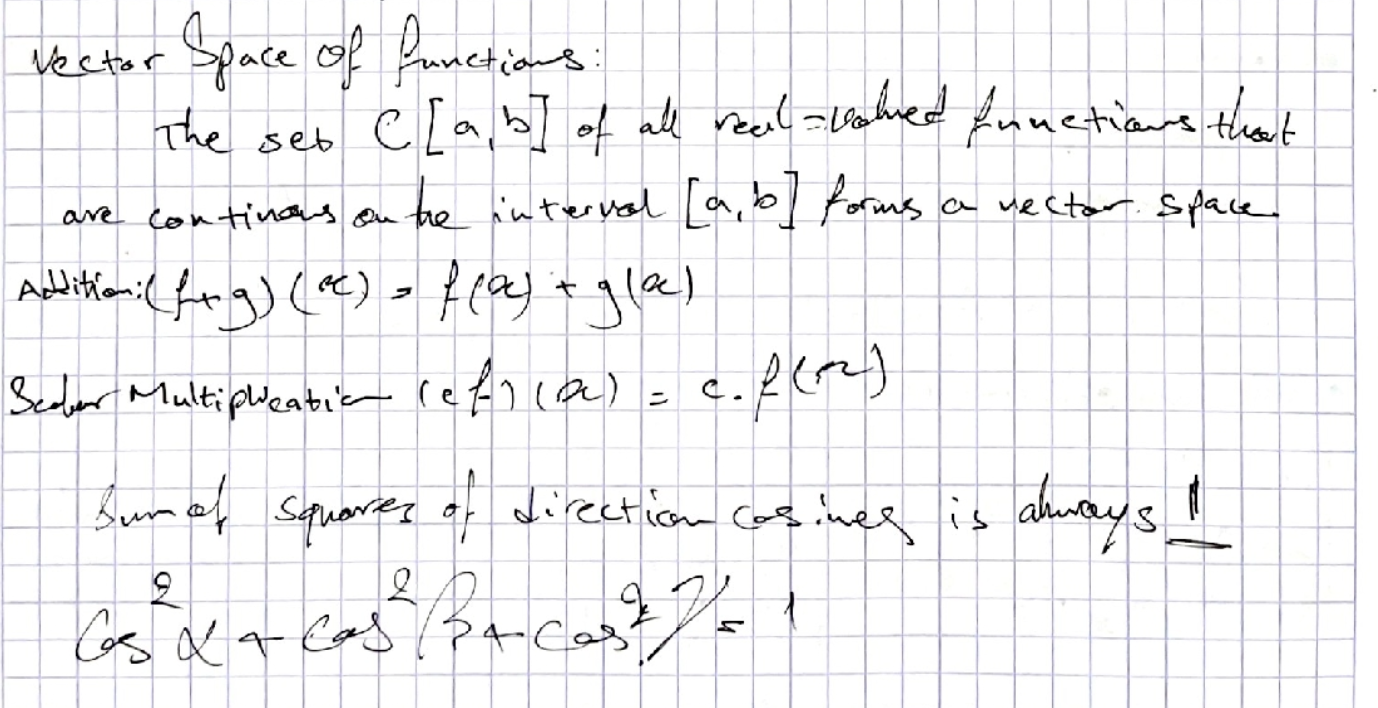 Vector Space of functions:
The set C[a,b] of all real-valued functions that
are continous on the interval [a,b] forms a vector space
Addition: (f+g)(x) = f(x) + g(x)
Scalar Multiplication (cf)(x) = c.f(x)
Sum of squares of direction cosines is always 1
Cos²α + Cos²β + cos²γ = 1